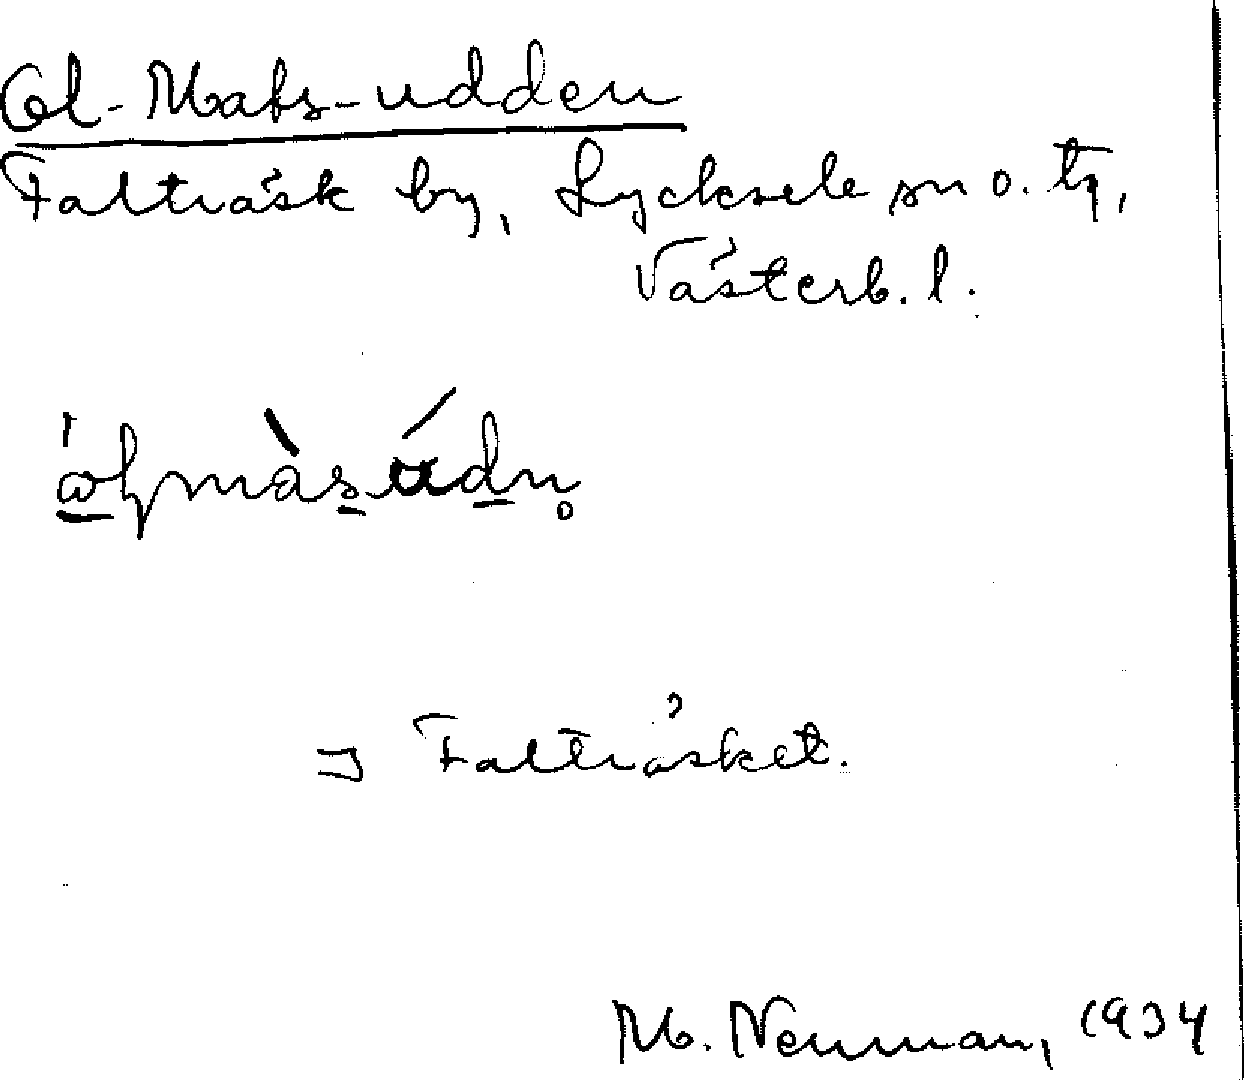 Ol-Mats-udden
Falträsk by, Lycksele sn o. tg,
Västerb. l.
Falträsket.
M. Neuman, 1934